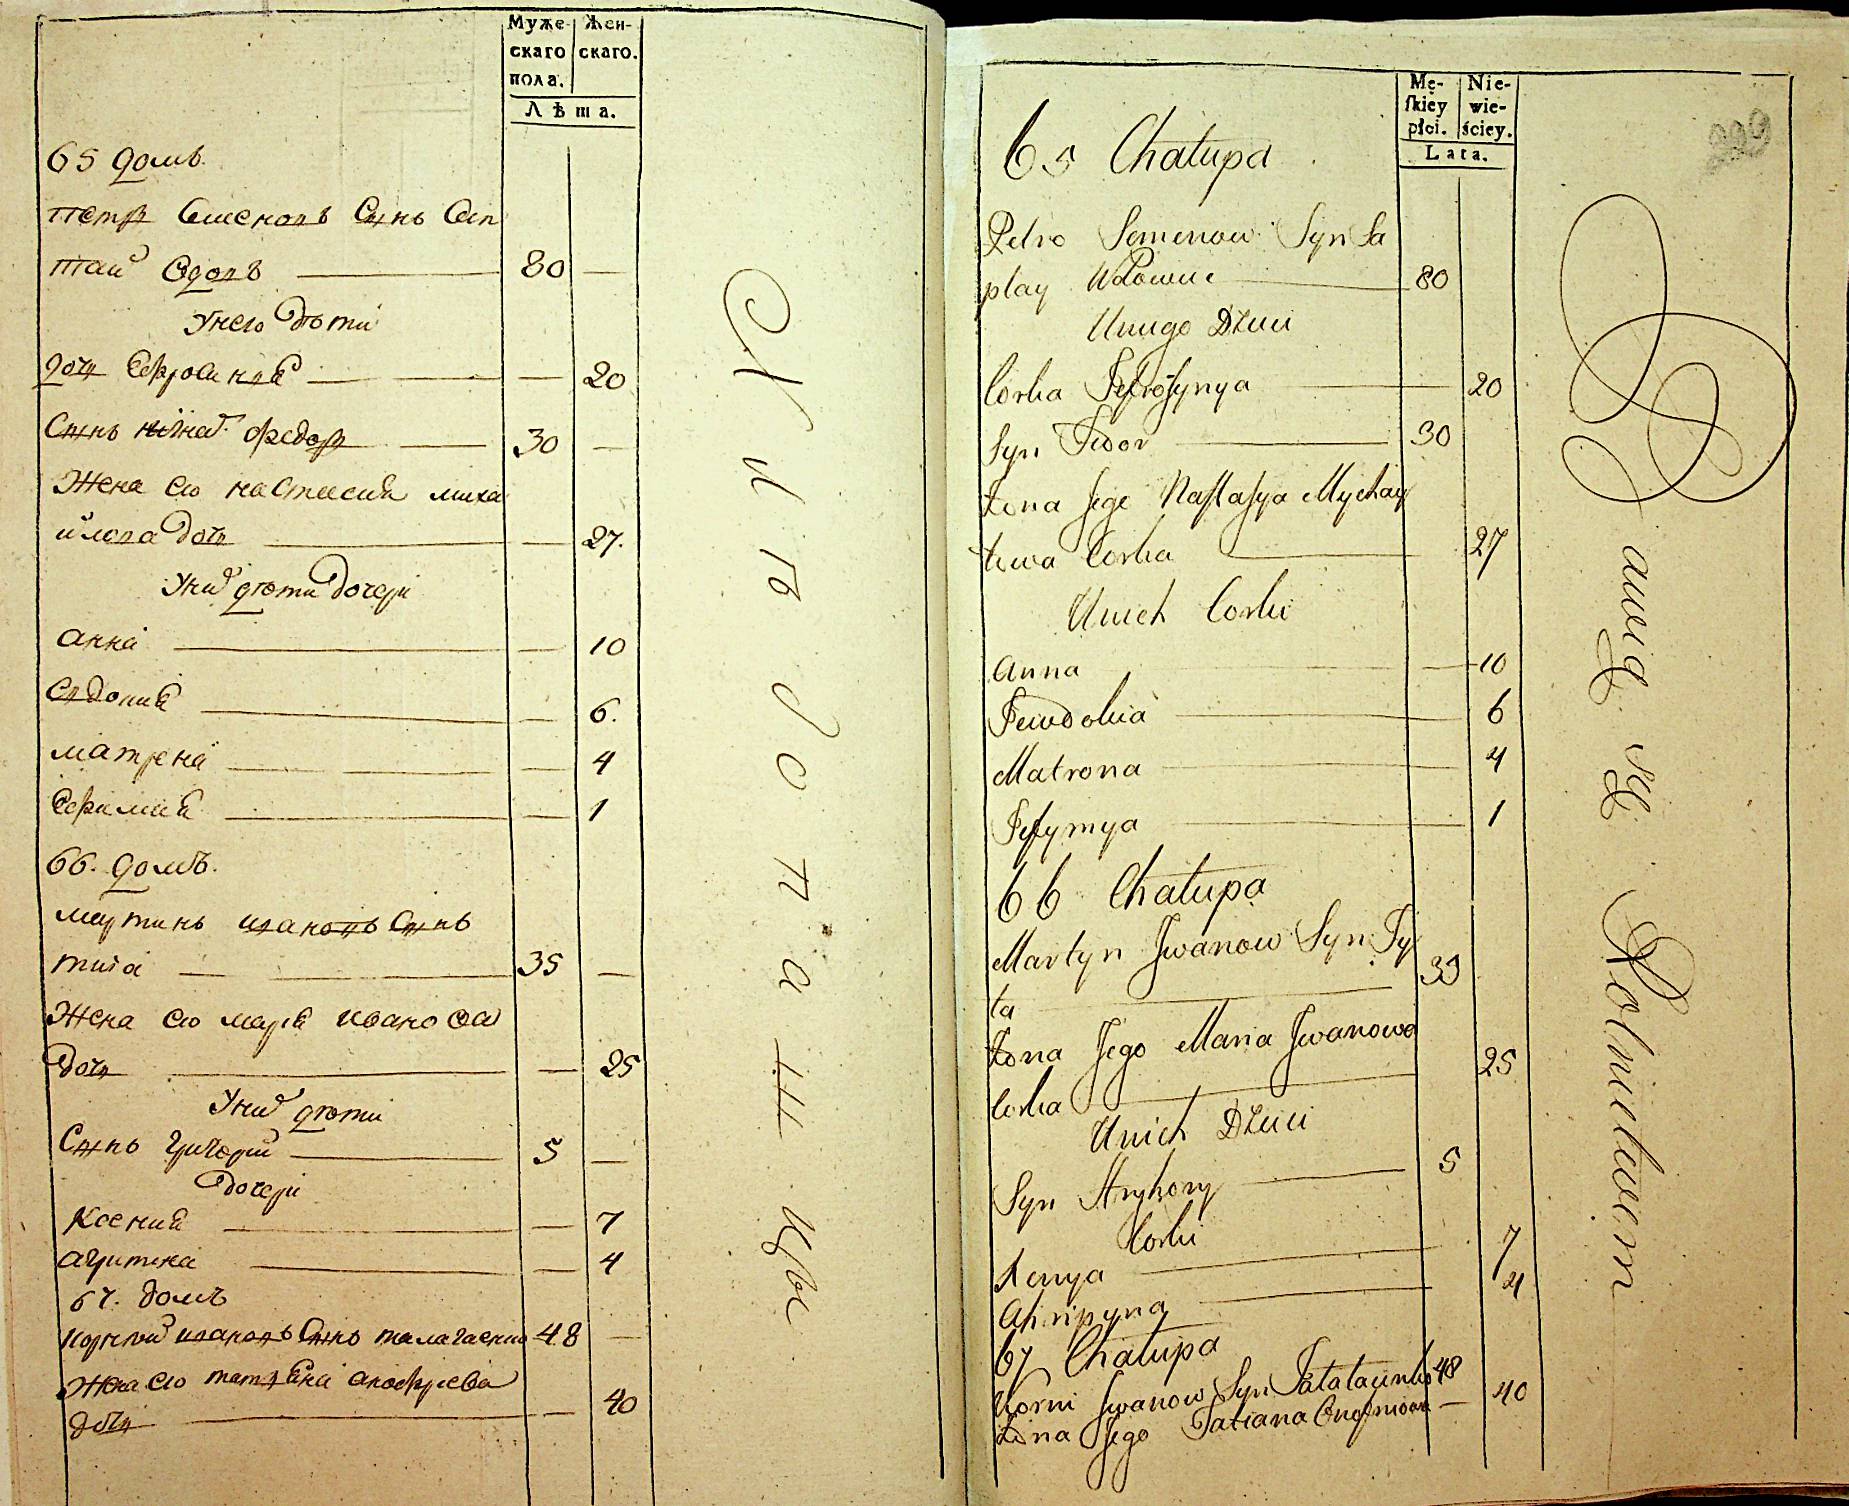 Муже-
скаго
пола.
Жен-
скаго.
Лѣта.
65 домъ
петръ Семеновъ Сынъ Сап
лай вдовъ 80
Унего дѣти
дочь Ефросиния 20
Сынъ федоръ 30
Жена ево настасия миха
йлова дочь 27.
Уних дѣти дочери
анна 10
Евдокия 6.
матрена 4
Ефимия 1
66. домъ.
мартинъ ивановъ Сынъ
тита 35
Жена ево мария иванова
дочь 25
Уних дѣти
Сынъ григорий 5
дочери
Ксения 7
агрипина 4
67. домъ
корний ивановъ Сынъ 48
Жена ево татияна анофриева
дочь 40
Хлѣбопашцы
Mę-
ſkiey
płci.
Nie-
wie-
ściey.
Lata.
65 Chałupa
Petro Semenow Syn Sa
płay Wdowiec 80
Uniego Dzieci
Corka Jefroſynya 20
Syn Fedor 30
Żona Jego Naſtaſya Mychay
łowa Corka 27
Unich Corki
Anna 10
Jewdokia 6
Matrona 4
Jefymya 1
66 Chałupa
Martyn Jwanow Syn Ty
ta 35
Żona Jego Maria Jwanowa
Corka 25
Unich Dzieci
Syn Hryhory 5
Corki
Xenya 7
Ahripyna 4
67 Chałupa
Korni Jwanow Syn 48
Żona Jego Tatiana 40
Rolnictwem